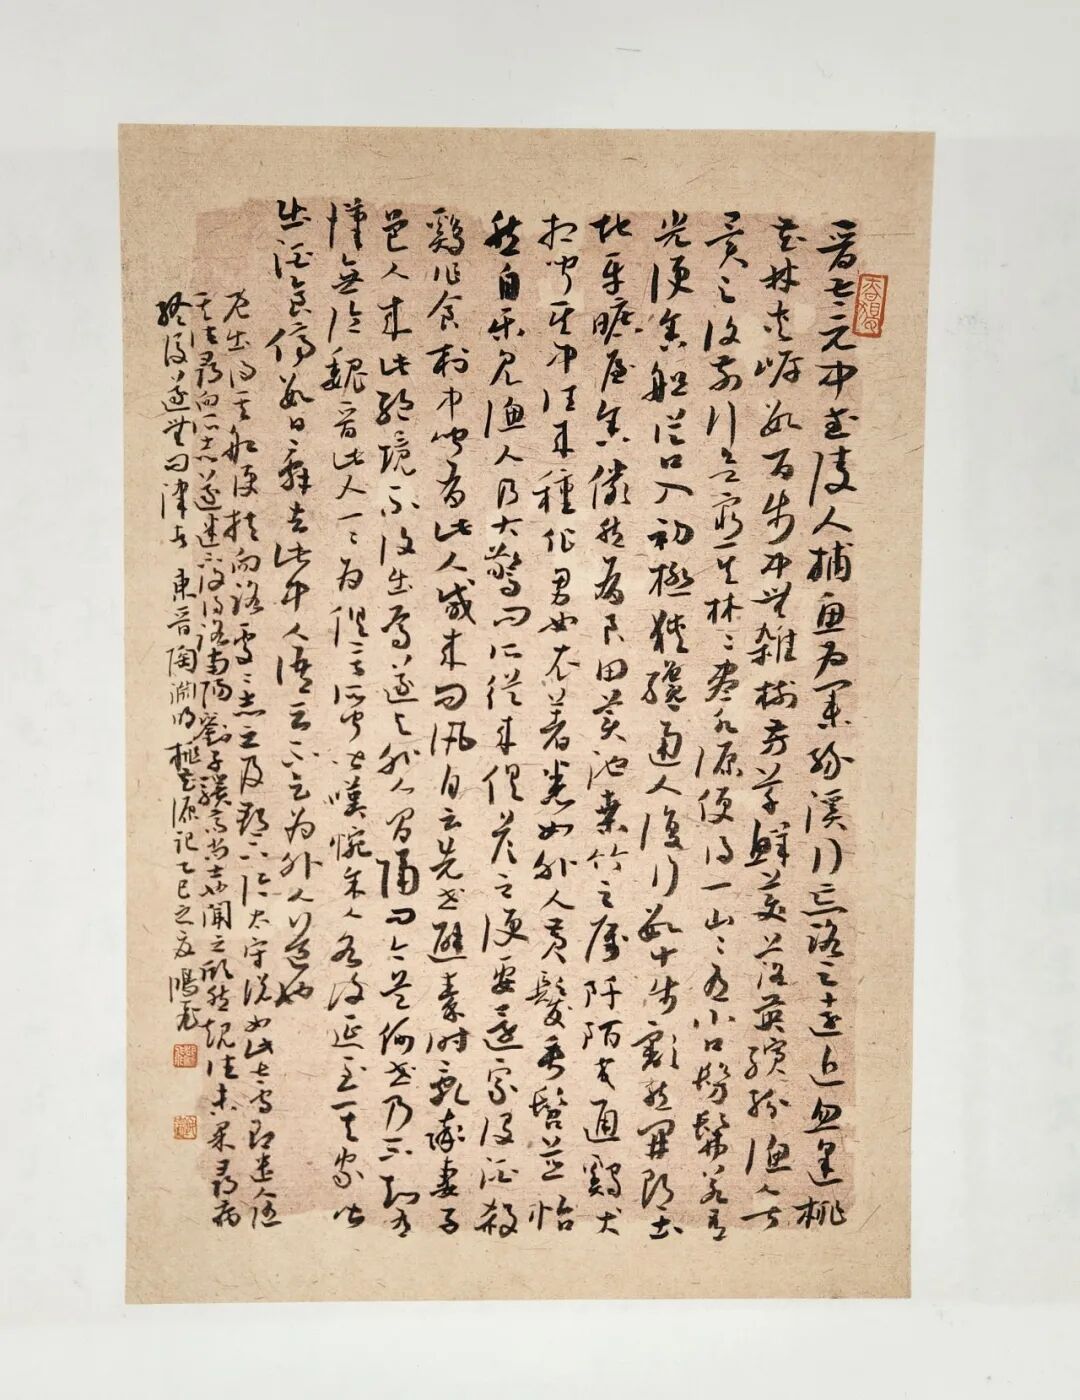 晋太元中武陵人捕魚為業緣溪行忘路之遠近忽逢桃
花林夾岸數百步中無雜樹芳草鮮美落英繽紛漁人甚
異之復前行欲窮其林林盡水源便得一山山有小口髣髴若有
光便舍船從口入初極狹纔通人復行數十步豁然開朗土
地平曠屋舍儼然有良田美池桑竹之屬阡陌交通鷄犬
相聞其中往来種作男女衣著悉如外人黄髮垂髫並怡
然自樂見漁人乃大驚問所從来具答之便要還家設酒殺
鷄作食村中聞有此人咸来問訊自云先世避秦時亂率妻子
邑人来此絶境不復出焉遂與外人間隔問今是何世乃不知有
漢無論魏晋此人一一為具言所聞皆嘆惋余人各復延至其家皆
出酒食停數日辭去此中人語云不足為外人道也
既出得其船便扶向路處處志之及郡下詣太守説如此太守即遣人隨
其往尋向所志遂迷不復得路南陽劉子驥高尚士也聞之欣然規往未果尋病
終後遂無問津者 東晋陶淵明桃花源記乙巳之夏鴻飛